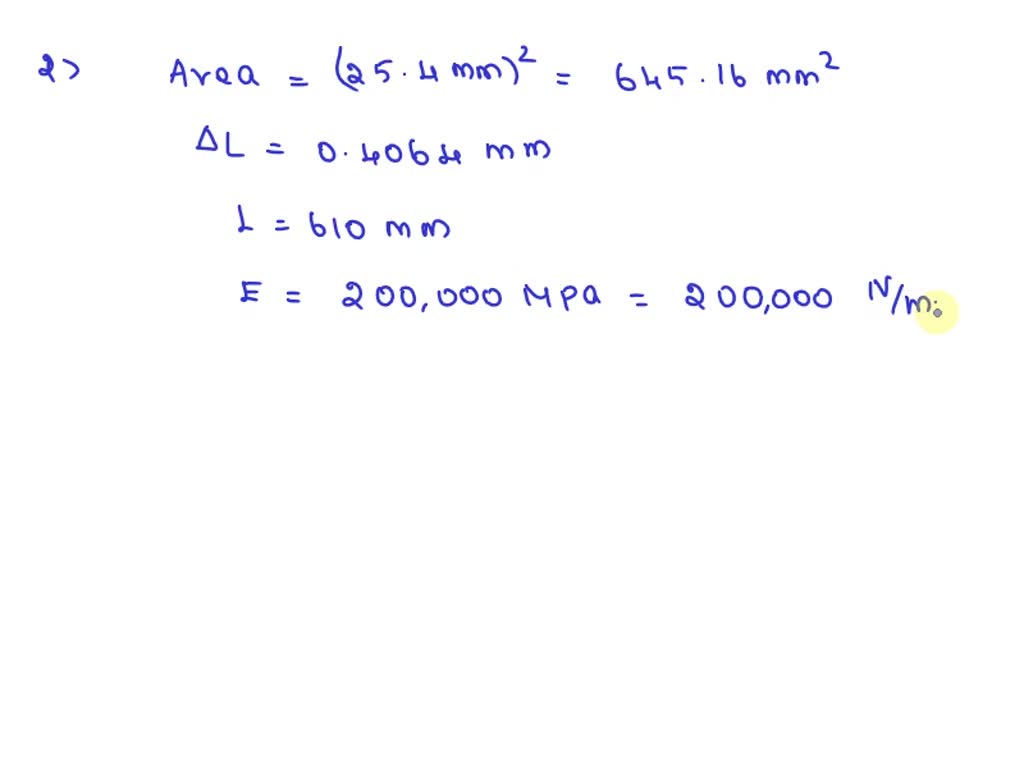 2> Area = (25.4 mm)² = 645.16 mm²
ΔL = 0.4064 mm
L = 610 mm
E = 200,000 MPa = 200,000 N/m